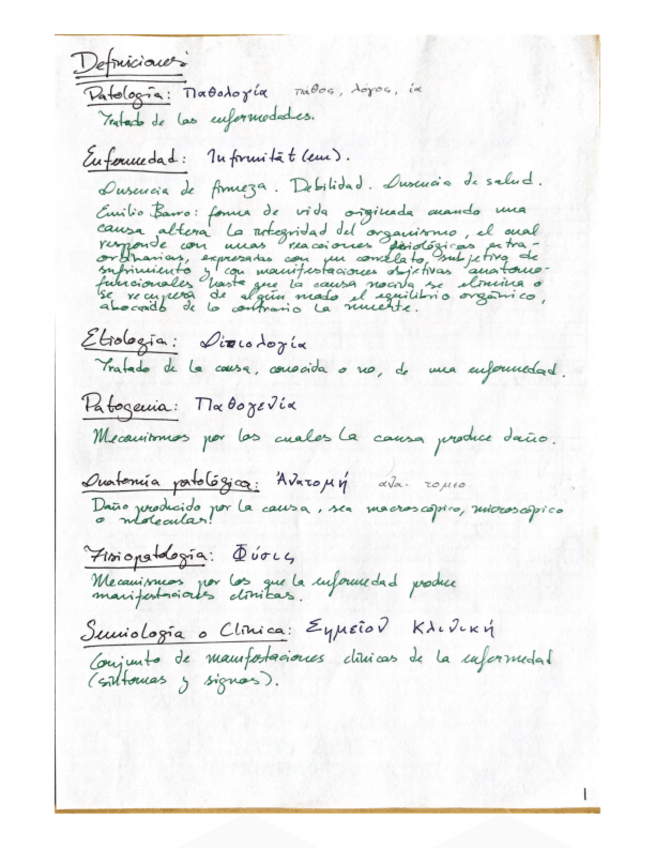 Definiciones
Patología: Παθολογία πάθος, λόγος, ία
Tratado de las enfermedades.
Enfermedad: Infirmitāt (em).
Ausencia de firmeza. Debilidad. Ausencia de salud.
Emilio Barro: forma de vida originada cuando una
causa altera la integridad del organismo, el cual
responde con unas reacciones fisiológicas extra-
ordinarias, expresadas con un correlato subjetivo de
sufrimiento y con manifestaciones objetivas anatomo-
funcionales hasta que la causa nociva se elimina o
se recupera de algún modo el equilibrio orgánico,
abocando de lo contrario la muerte.
Etiología: Αἰτιολογία
Tratado de la causa, conocida o no, de una enfermedad.
Patogenia: Παθογενία
Mecanismos por los cuales la causa produce daño.
Anatomía patológica: Ἀνατομή ανα. τομεο
Daño producido por la causa, sea macroscópico, microscópico
o molecular!
Fisiopatología: Φύσις
Mecanismos por los que la enfermedad produce
manifestaciones clínicas.
Semiología o Clínica: Σημεῖον Κλινική
Conjunto de manifestaciones clínicas de la enfermedad
(síntomas y signos).
1